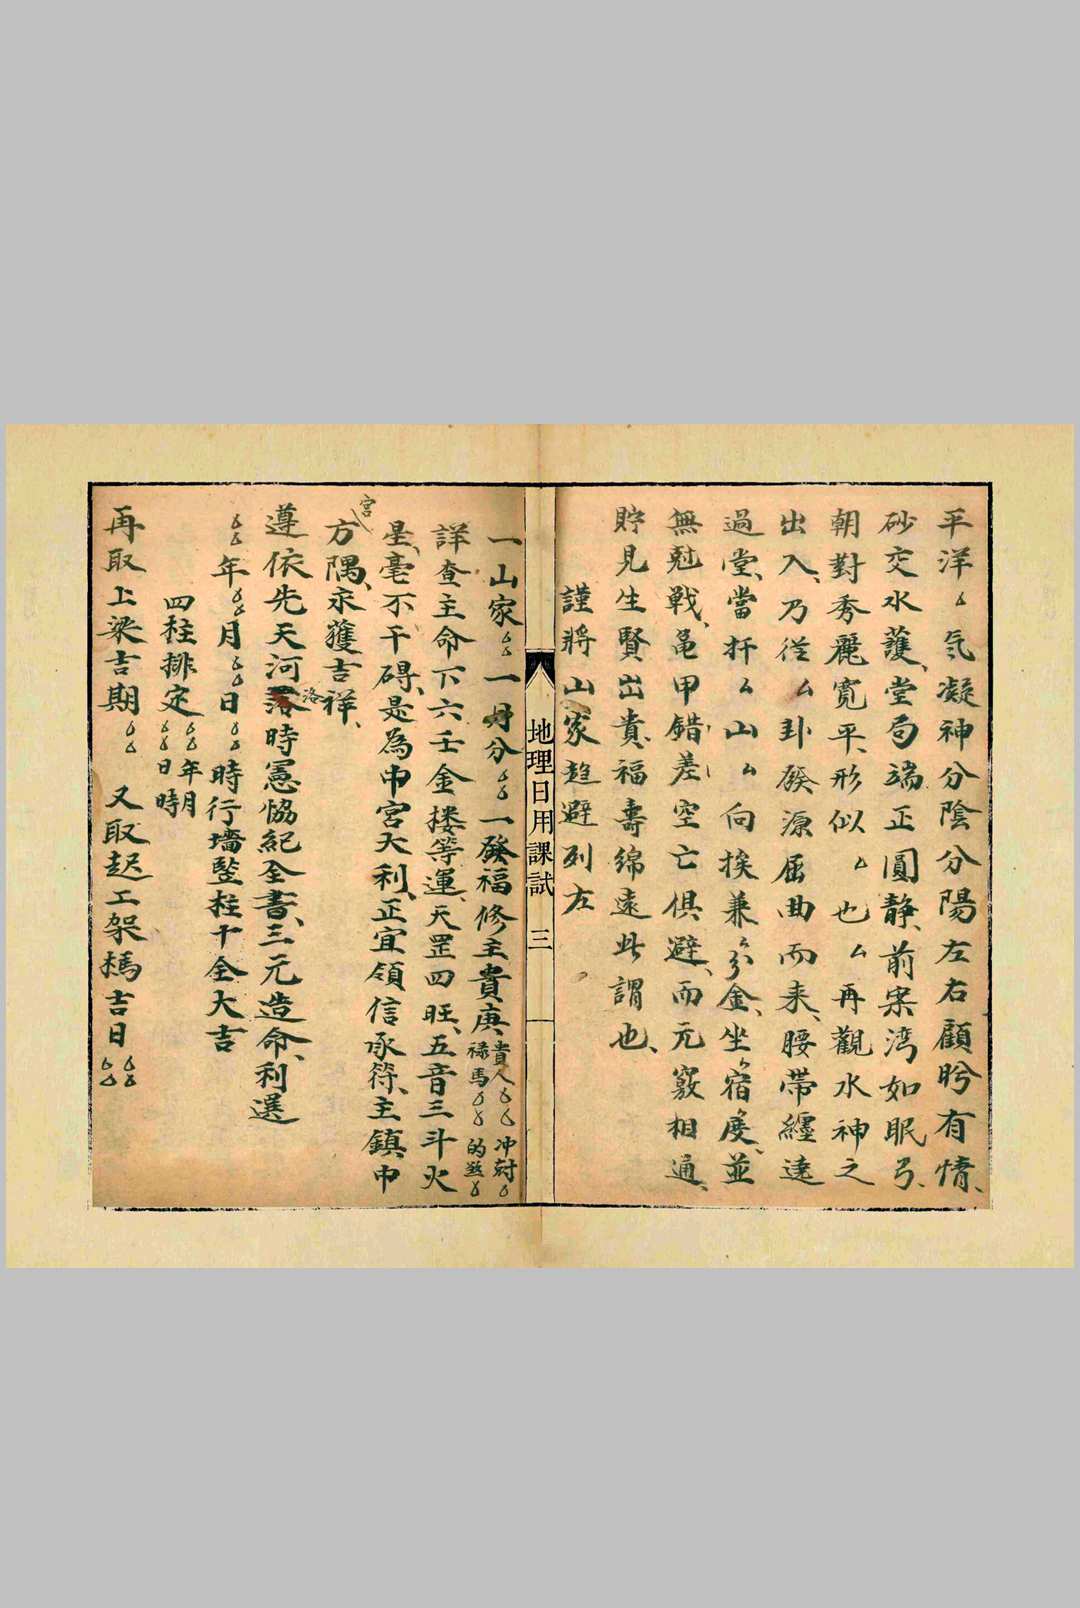 平洋厶氣凝神分陰分陽左右顧盻有情、
砂交水護、堂局端正圓静、前案湾如眠弓、
朝對秀麗寛平、形似厶厶也厶再觀水神之
出入、乃從厶卦發源屈曲而来、腰帶纏遶
過堂、當扦厶山厶向挨兼厶分金、坐厶宿厶度、並
無尅戰、龟甲錯差空亡俱避、而元竅相通、
貯見生賢出貴、福壽綿遠此謂也、
謹將山家趋避列左
地理日用課試 三
一山家厶厶一月分厶厶一發福修主貴庚、貴人厶厶冲尅厶
禄馬厶厶的煞厶
詳查主命下六壬金楼等運、天罡四旺、五音三斗火
星、毫不干碍、是為中宮大利、正宜領信承符、主鎮中
宮
方隅、永獲吉祥、
遵依先天河洛時憲協紀全書、三元造命、利選
厶厶年厶厶月厶厶日厶厶時行墻竪柱十全大吉
四柱排定厶厶年厶厶月
厶厶日厶厶時
再取上梁吉期厶厶 又取起工架榪吉日厶厶厶厶